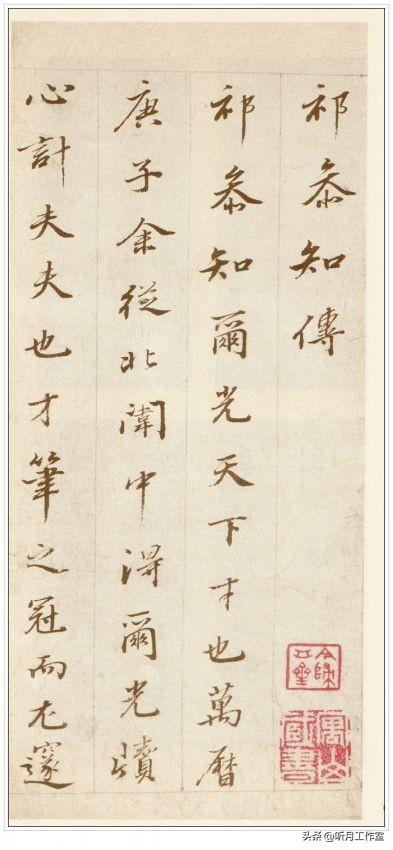 祁叅知傳
祁叅知爾光天下才也萬曆
庚子余從北闈中得爾光牘
心計夫夫也才筆之冠而尤邃
头条 @听月工作室